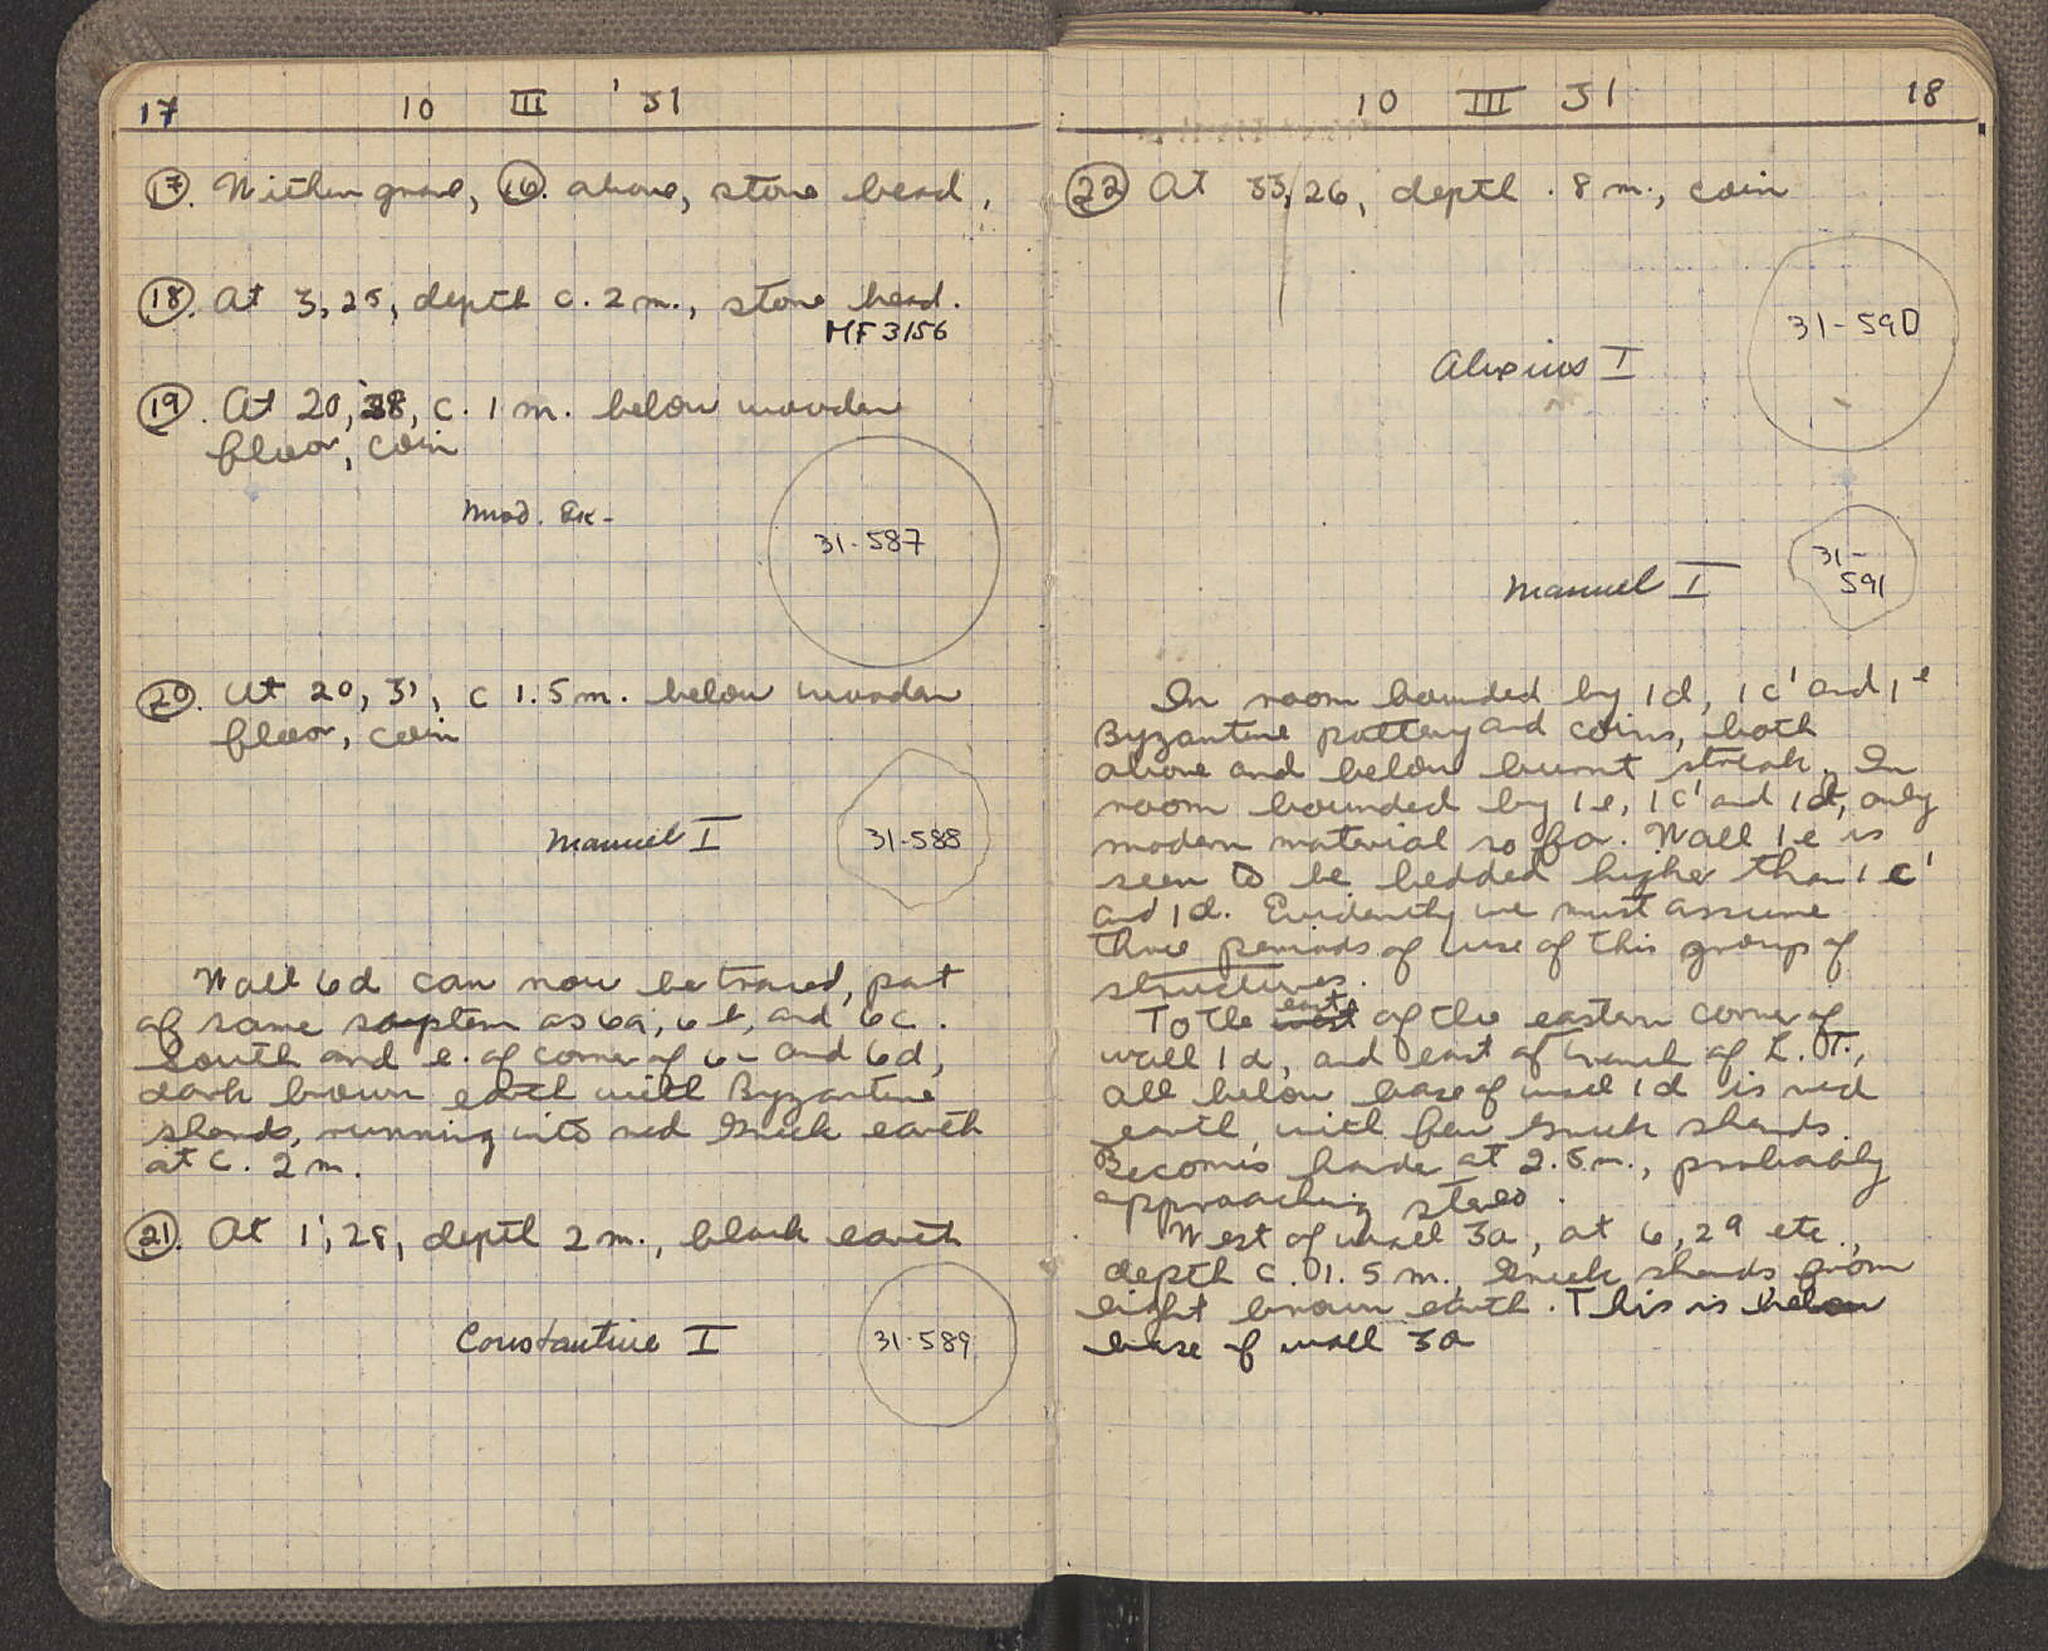 17 10 III '31
17. Within grave, 16. above, stone bead.
18. At 3,25, depth c. 2 m., stone bead.
MF 3156
19. At 20,28, c. 1 m. below wooden
floor, coin
Mod. Gk-
31-587
20. At 20, 31, c 1.5 m. below wooden
floor, coin
Manuel I
31-588
Wall 6d can now be traced, part
of same system as 6a, 6b, and 6c.
South and e. of corner of 6c and 6d,
dark brown earth with Byzantine
sherds, running into red Greek earth
at c. 2 m.
21. At 1, 28, depth 2 m., black earth
Constantine I
31-589
10 III 31 18
22 At 33/26, depth .8 m., coin
31-590
Alexius I
Manuel I
31-
591
In room bounded by 1d, 1c' and 1e
Byzantine pottery and coins, both
above and below burnt streak. In
room bounded by 1e, 1c' and 1d, only
modern material so far. Wall 1e is
seen to be bedded higher than 1c'
and 1d. Evidently we must assume
three periods of use of this group of
structures.
To the west east of the eastern corner of
wall 1d, and east of trench of L.T.,
all below base of wall 1d is red
earth, with few Greek sherds.
Becomes harder at 2.5 m., probably
approaching stereo.
West of wall 3a, at 6,29 etc.,
depth c. 1.5 m., Greek sherds from
light brown earth. This is below
base of wall 3a